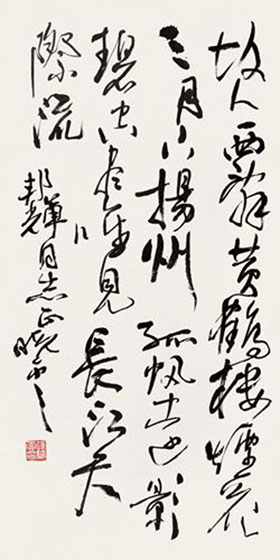 故人西辞黄鶴樓煙花
三月下揚州孤帆遠影
碧空盡唯見長江天
際流
邦輝同志正